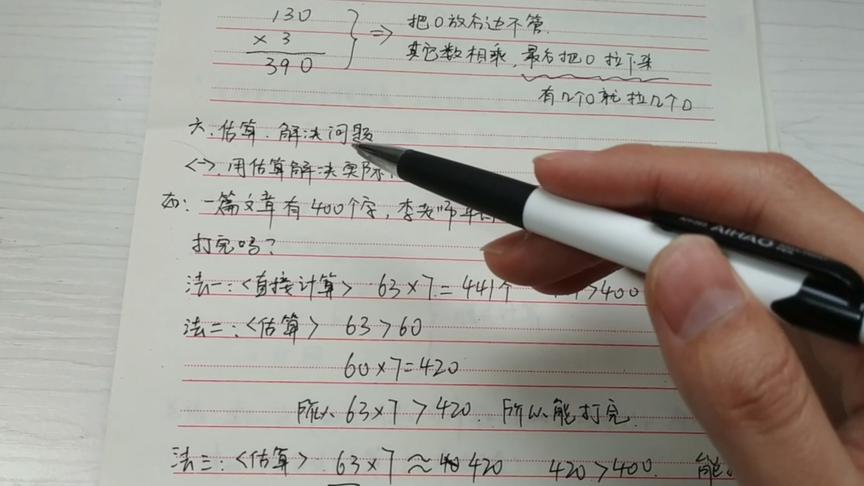 130
× 3
390
⇒ 把0放右边不管.
其它数相乘, 最后把0拉下来
有几个0就拉几个0
六. 估算. 解决问题
<一>. 用估算解决实际
一篇文章有400个字, 李老师
打完吗?
法一:<直接计算> 63×7=441个 >400
法二:<估算> 63>60
60×7=420
所以 63×7>420. 所以能打完.
法三:<估算> 63×7≈420 420>400. 能
AIHAO